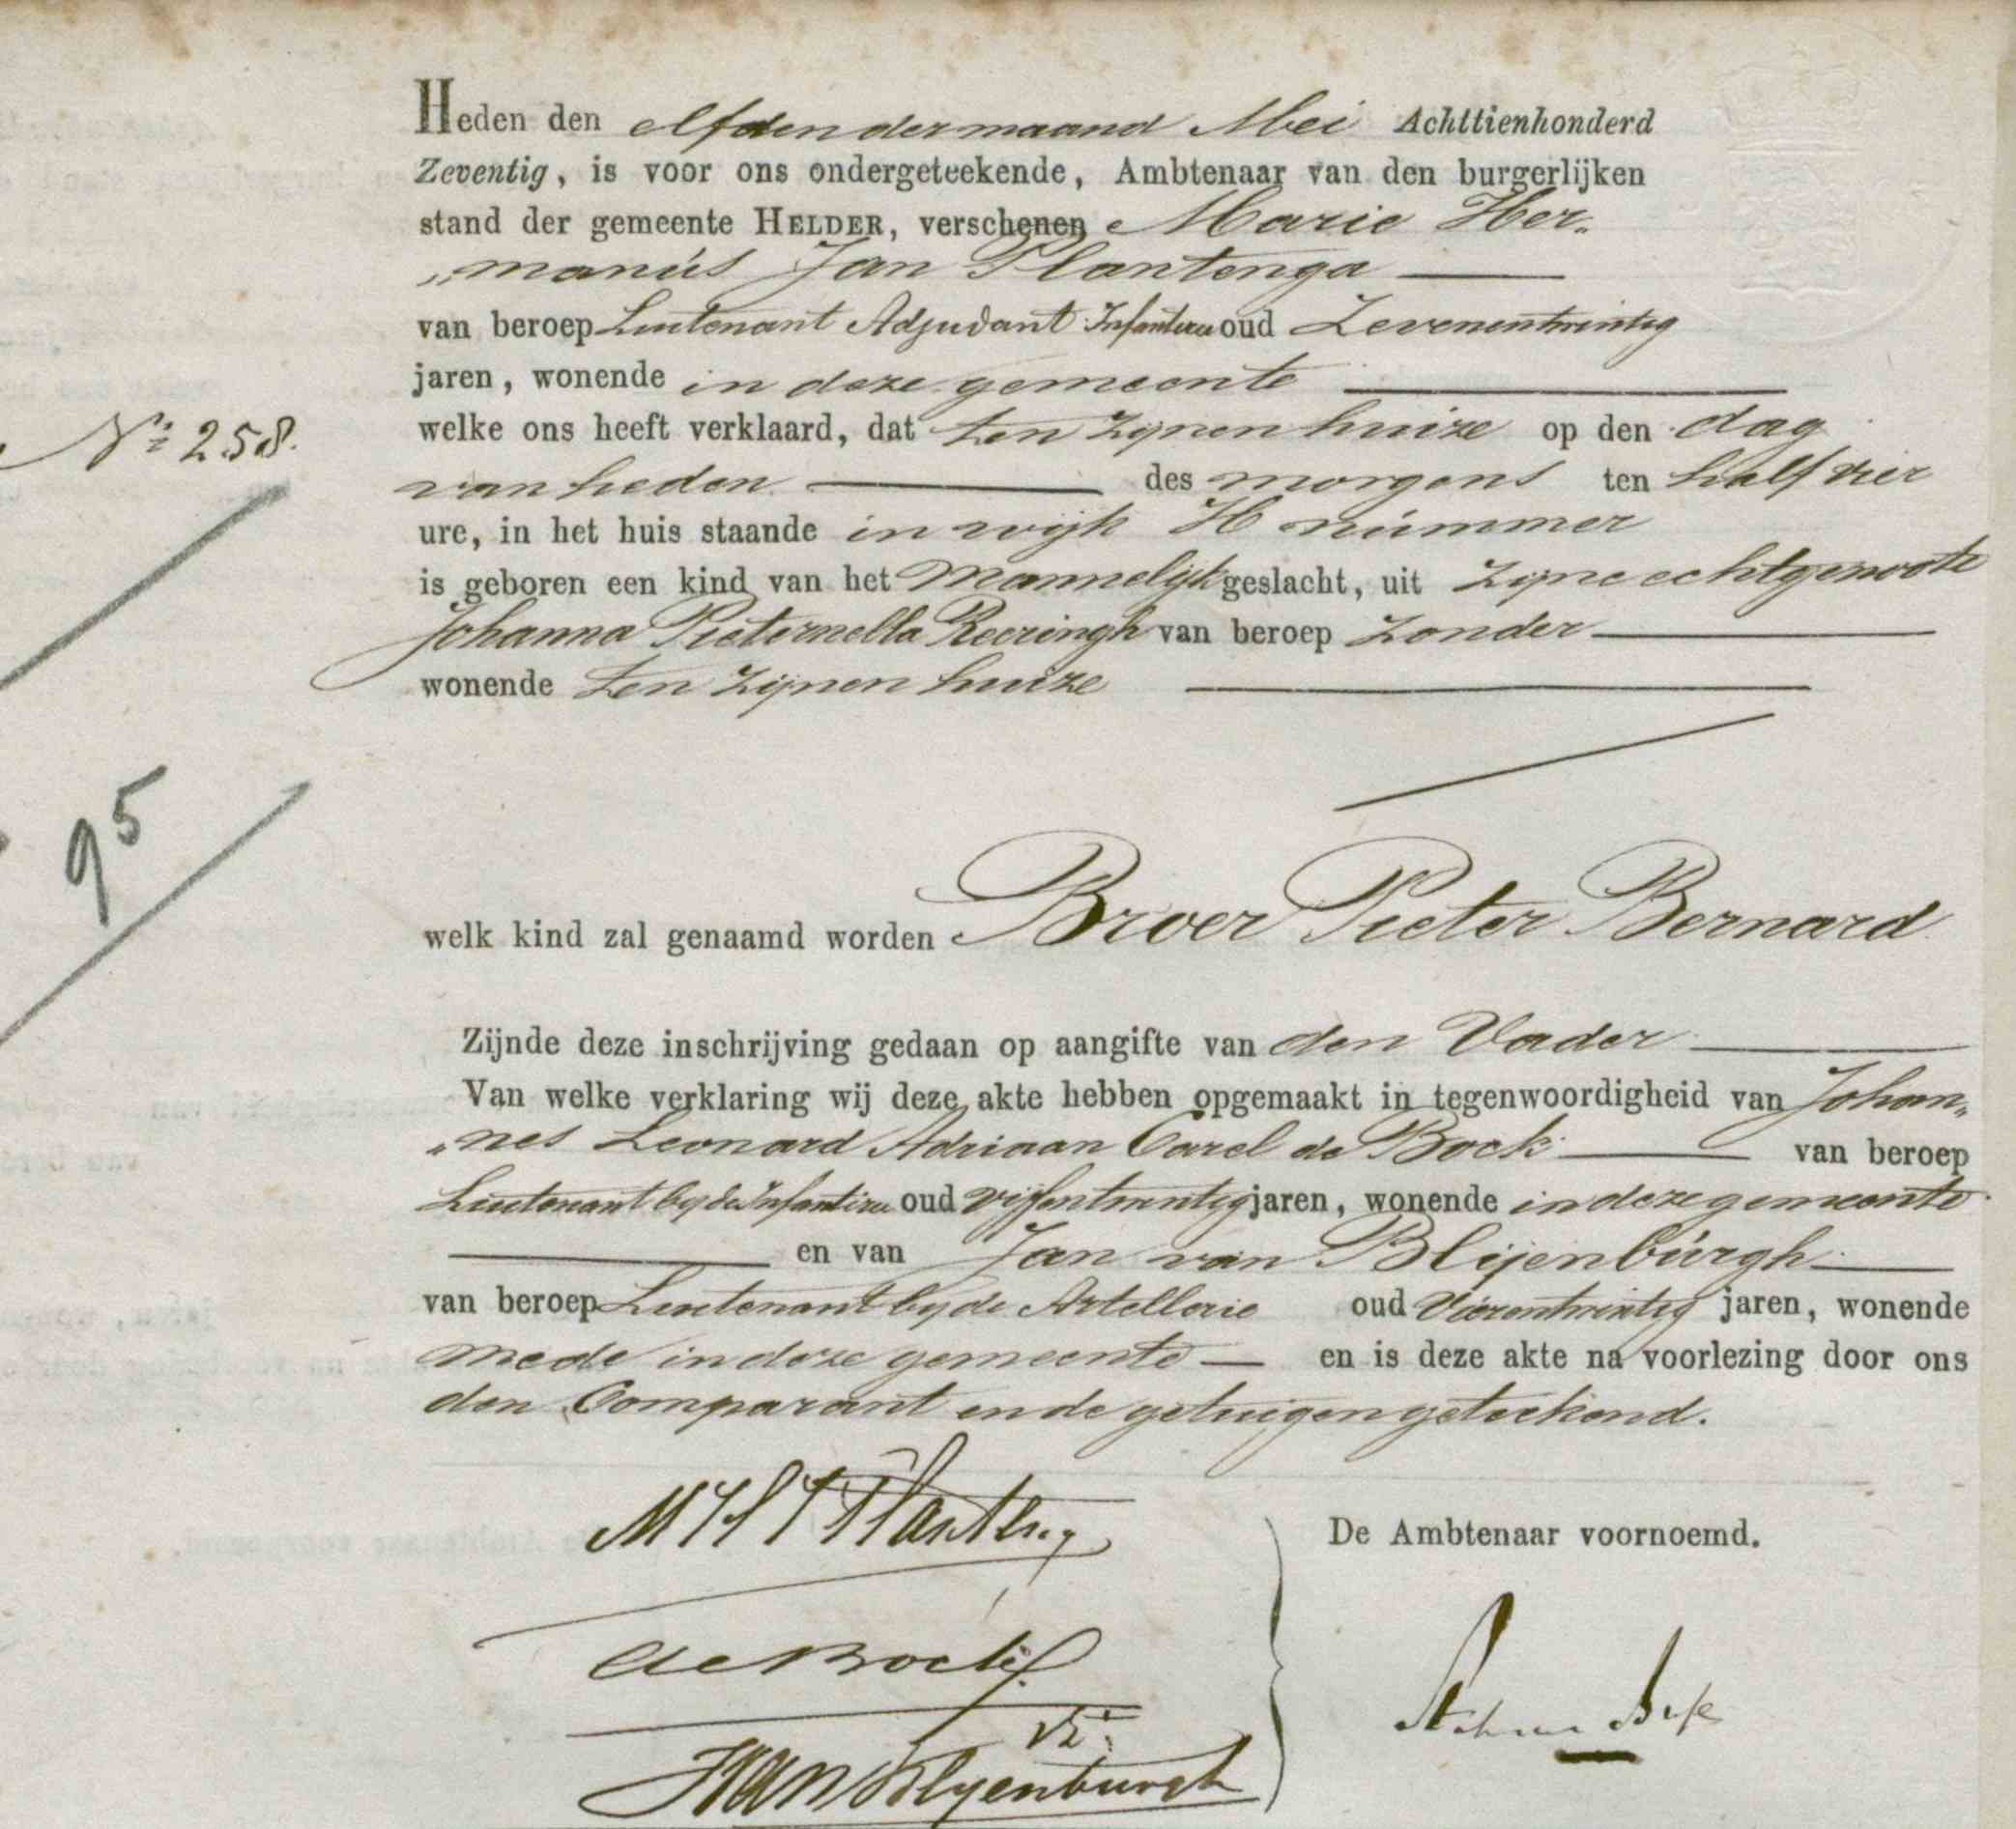 Heden den elfden der maand Mei Achttienhonderd
Zeventig, is voor ons ondergeteekende, Ambtenaar van den burgerlijken
stand der gemeente HELDER, verschenen Marie Her-
„manus Jan Plantenga
van beroep Luitenant Adjudant Infanterie oud Zevenentwintig
jaren, wonende in deze gemeente
No 258.
welke ons heeft verklaard, dat ten zijnen huize op den dag
van heden des morgens ten half vier
ure, in het huis staande in wijk H nummer
is geboren een kind van het Mannelijk geslacht, uit zijne echtgenoote
Johanna Pieternella Reeringh van beroep zonder
wonende ten zijnen huize
95
welk kind zal genaamd worden Broer Pieter Bernard
Zijnde deze inschrijving gedaan op aangifte van den Vader
Van welke verklaring wij deze akte hebben opgemaakt in tegenwoordigheid van Johan„
„nes Leonard Adriaan Carel de Bock van beroep
Luitenant bij de Infanterie oud vijfentwintig jaren, wonende in deze gemeente
en van Jan van Blijenburgh
van beroep Luitenant bij de Artellerie oud Vierentwintig jaren, wonende
mede in deze gemeente en is deze akte na voorlezing door ons
den Comparant en de getuigen geteekend.
MHJ Plantenga
De Ambtenaar voornoemd.
de Bock
JvanBlyenburgh